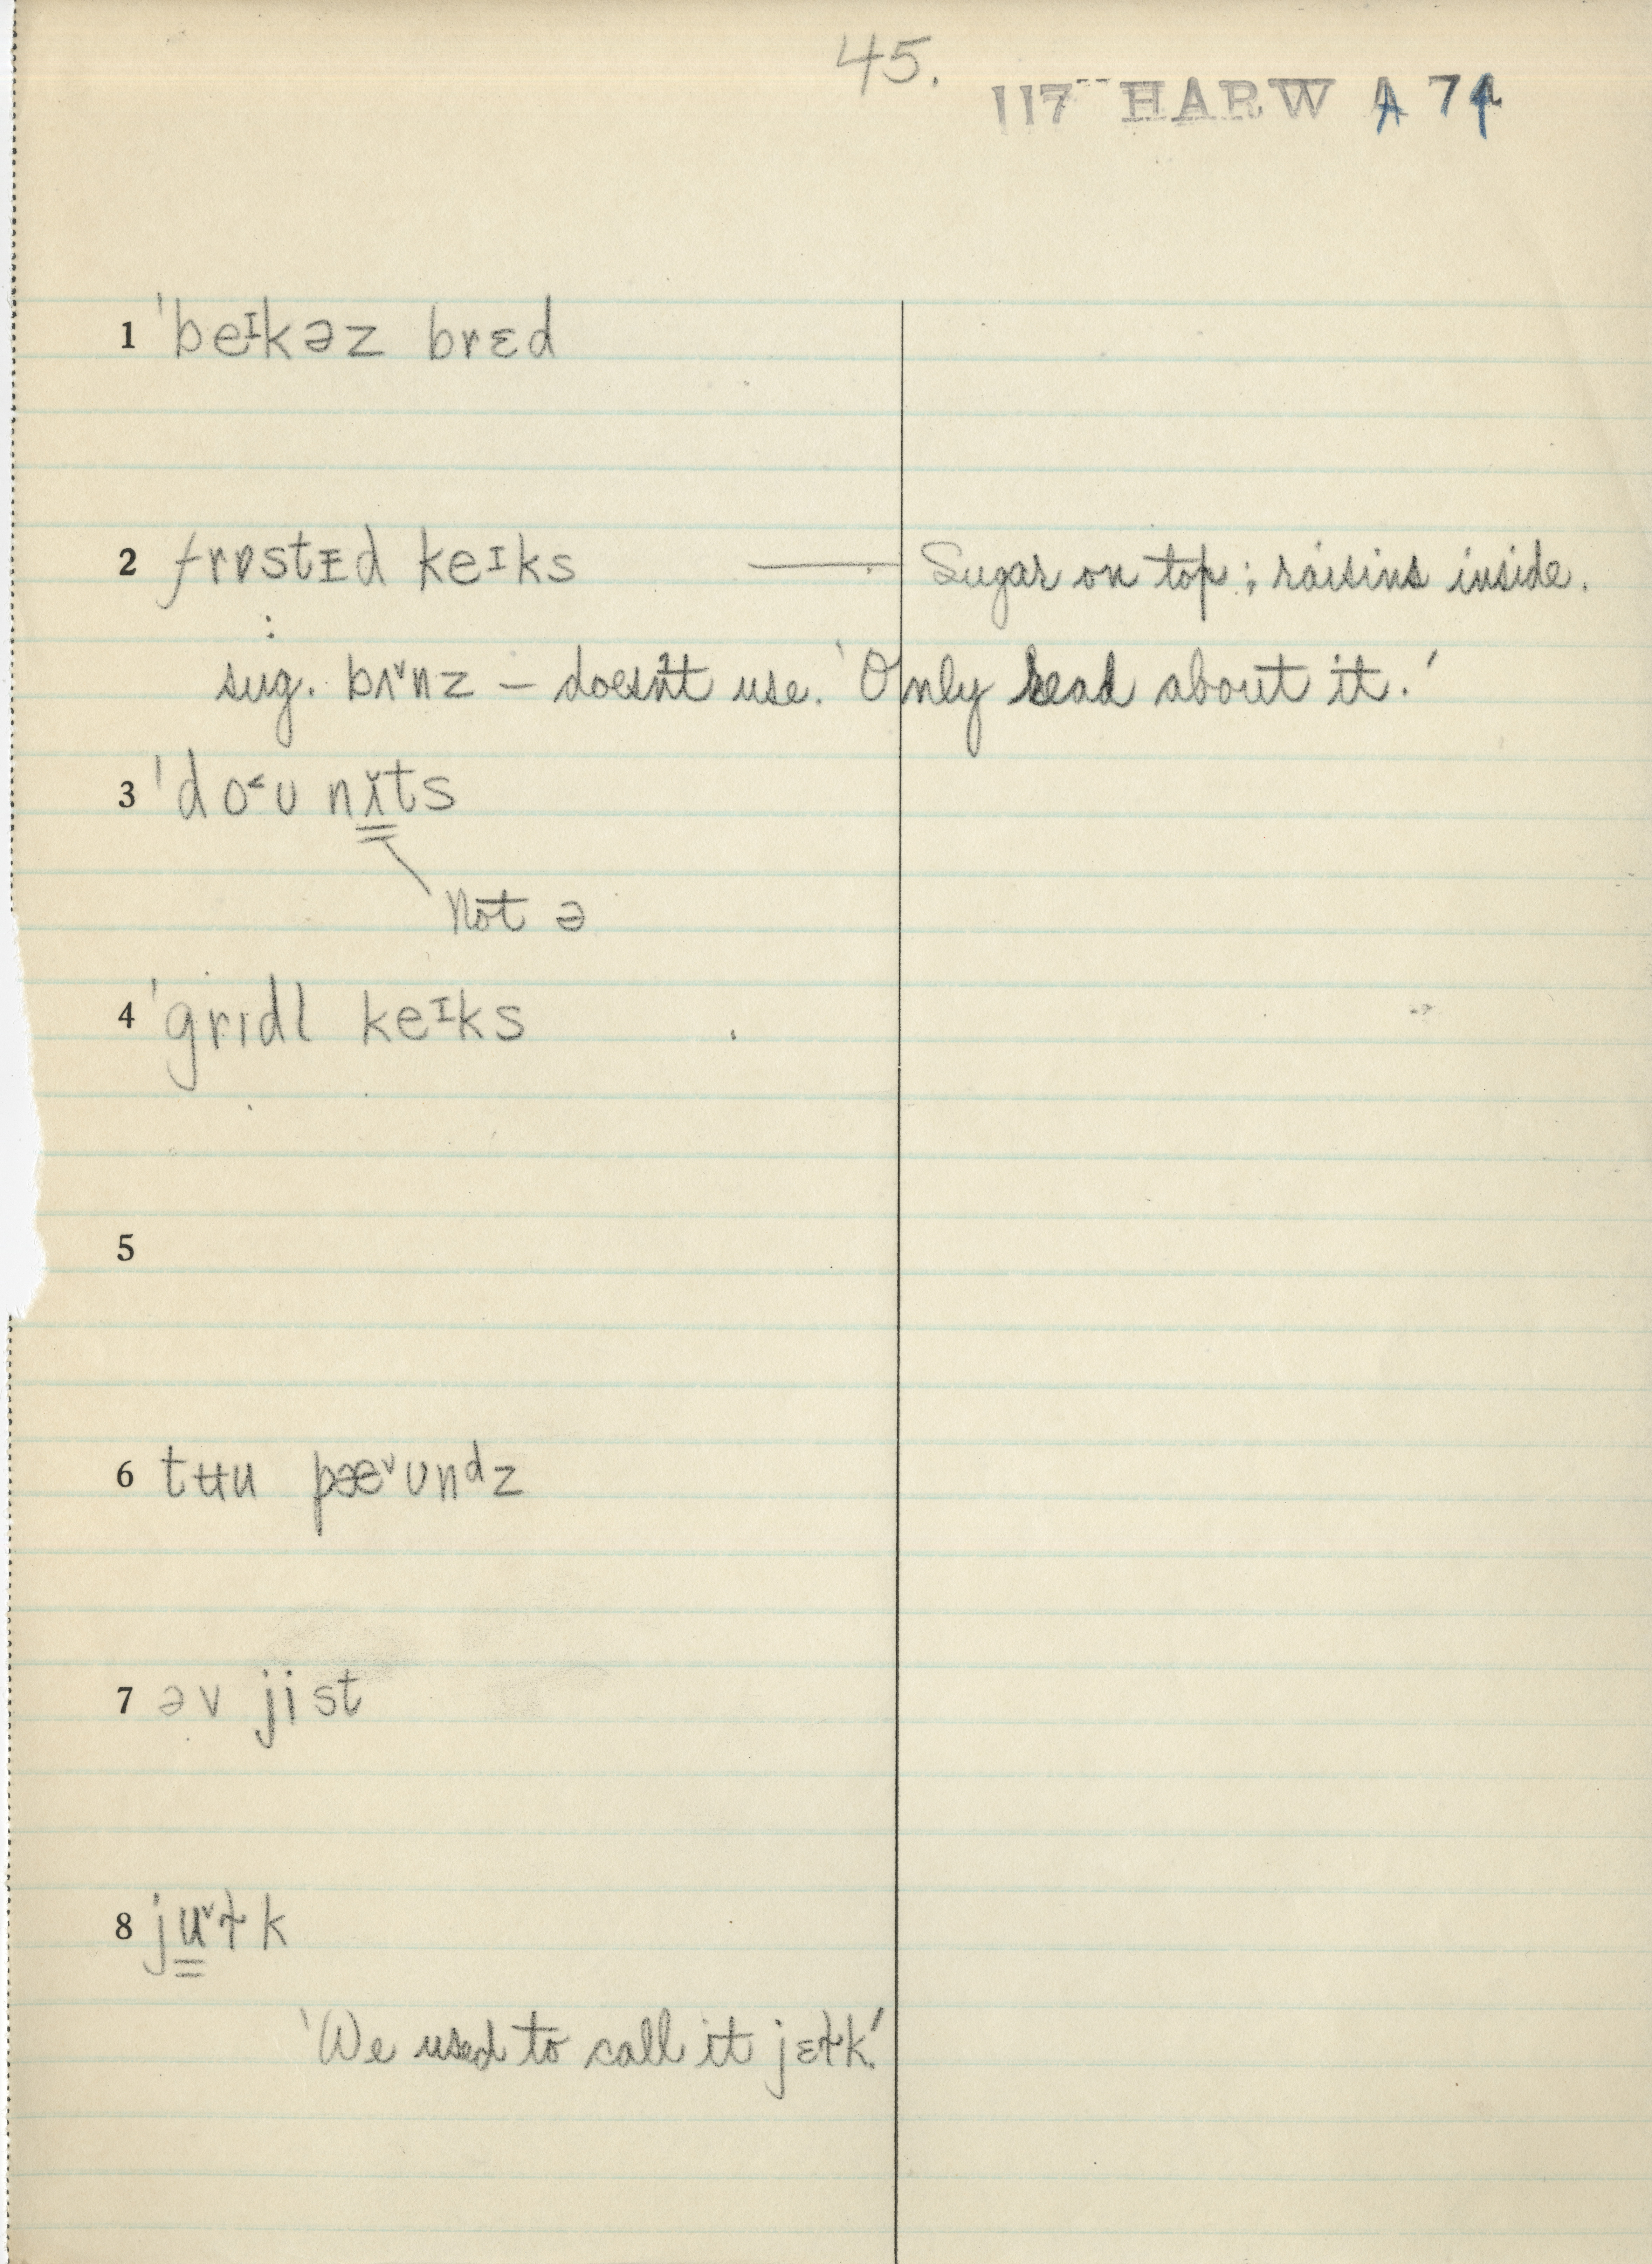 45.
117 HARW A 74
1 ˈbeᶦkəz brɛd
2 frɒstɪd keᶦks — Sugar on top; raisins inside.
:
sug. bʌ˅nz – doesn't use. 'Only read about it.'
3 ˈdo˂ʊ nɪ̆ts
Not ə
4 ˈgrɪdl keᶦks
5
6 tʉu pæ˅ʊnᵈz
7 əv jist
8 ju˅ɫk
'We used to call it jɛɫk.'